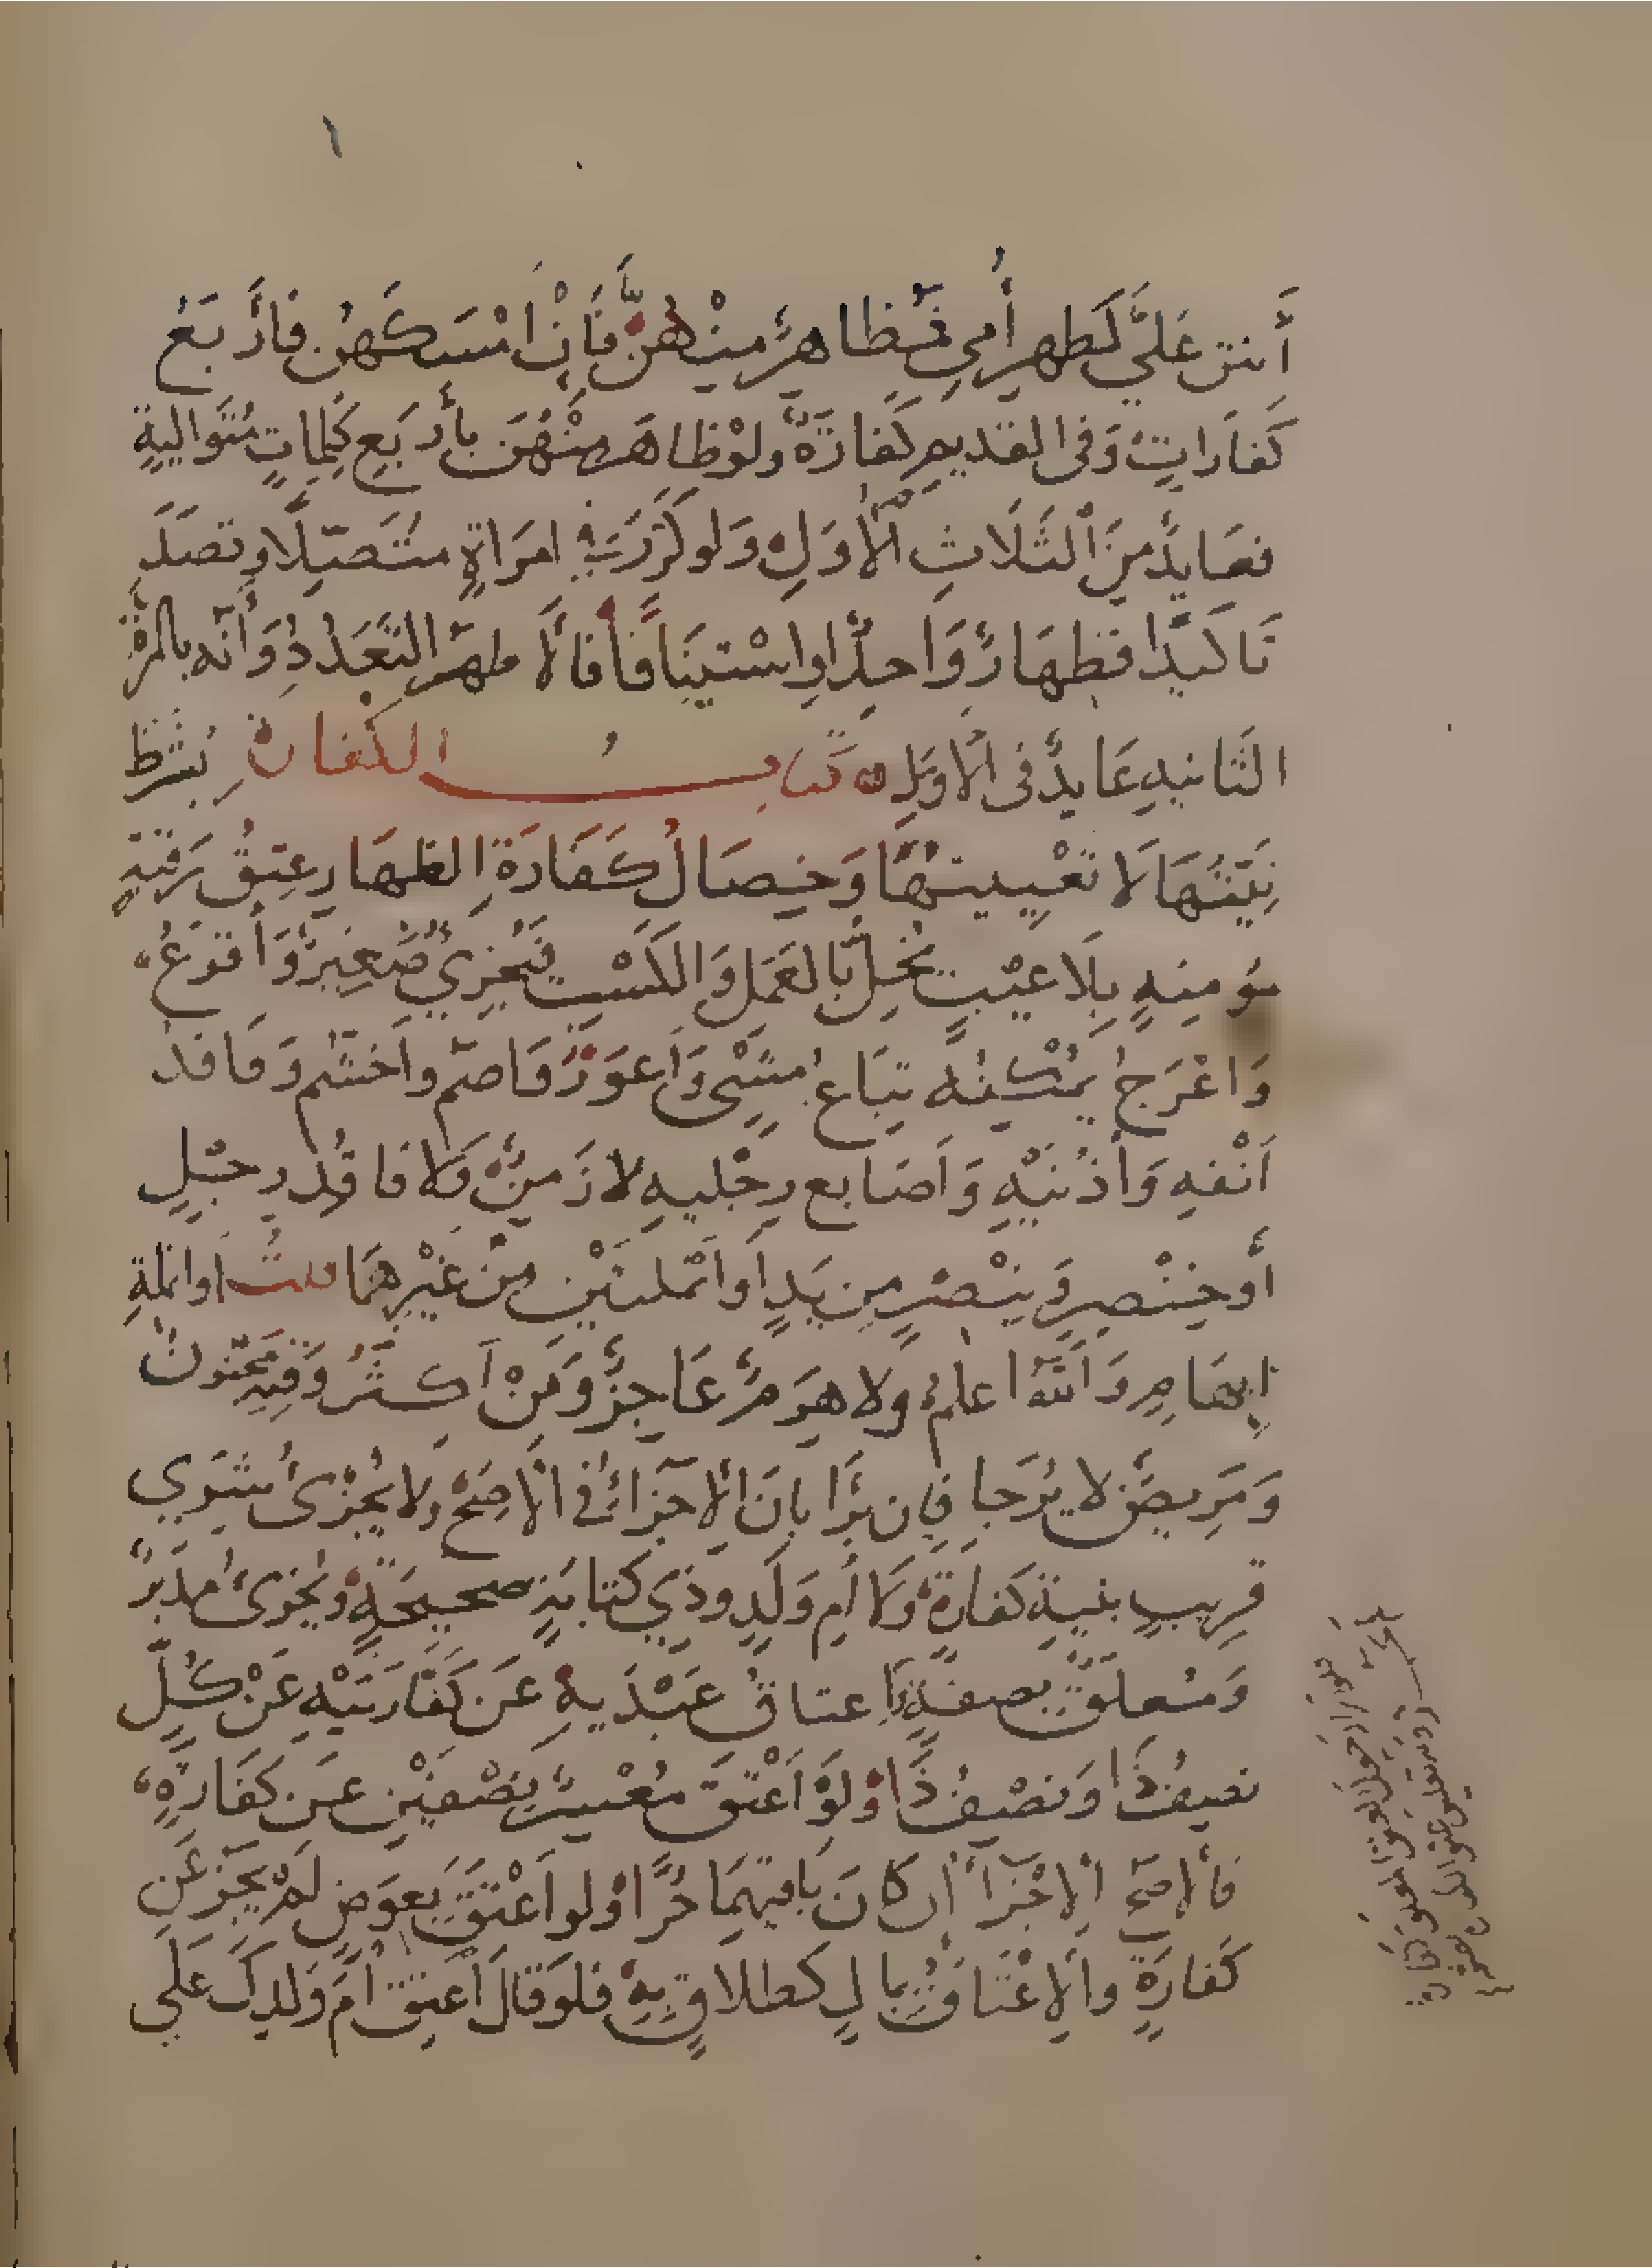 أنتن عَليَّ كَظهرِ أمي فمُظاهِرٌ مِنْهُنَّ فَاِنْ امْسَكَهُن فَأرْبَعُ
كَفارَاتٍ وَفي القديمِ كَفارَةٌ ولوْ ظاهَرَ مِنْهُنَّ بأرْبَعِ كَلِماتٍ مُتَوَاليةٍ
فعَايدٌ مِنَ الثَلَاثِ الأُوَلِ وَلو كَرَّرَ في امرَاةٍ مُتَصِلًا وقصَدَ
تَاكيدًا فظِهَارٌ وَاحِدٌ او اسْتينَافًا فالاظهَرُ التَّعَدُدُ وَأنه بالمرَّةِ
الثَانيةِ عَايدٌ في الأوَلِ كتابُ الكفارة يُشْتَرَطُ
نِيَّتُهَا لَا تَعْيينُهَا وَخِصَالُ كَفَارَةِ الظهَارِ عِتقُ رَقبَةٍ
مُؤمِنةٍ بِلَا عيْبٍ يُخِلُّ بالعَمَلِ وَالكَسْبِ فيُجْزِي صَغِيرٌ وَأقرَعُ
وَاعْرَجُ يُمْكِنُه تبَاعُ مشْي وَأعوَرُ وَاصَم وأخشَم وَفَاقدُ
أنْفهِ وَأذُنيْهِ وَأصَابع رِجْليهِ لا زَمِنٌ وَلا فاقدُ رِجْلٍ
أو خِنْصِرٍ وَبِنْصِرٍ مِن يَدٍ أو أنمُلتَيْن مِنْ غَيْرِهمَا قلتُ أو انملةِ
إبهَامٍ وَاللهُ اعلمُ ولا هَرِمٌ عَاجِزٌ وَمَنْ أكثرُ وَقتِهِ مَجنونٌ
وَمَرِيضٌ لا يُرْجَا فإن بَرَأ بانَ الإجزَاءُ في الأصَحِّ ولا يُجْزئُ شِرَى
قرِيبٍ بنيةِ كفارَةٍ وَلا أم وَلَدٍ وذي كتابَةٍ صحيحَةٍ ويُجْزئُ مدَبَّرٌ
وَمُعلَقٌ بصفةٍ وَإعتاقُ عَبْدَيهِ عَن كَفَّارَتيْهِ عَنْ كُلٍّ
نصفُ ذَا وَنصْفُ ذَا وَلَوْ اَعْتَقَ مُعْسِرٌ نِصْفَيْنِ عَن كفَارةٍ
فالاصَحُّ الإجْزَاءُ إن كانَ بَاقيهِمَا حُرًّا ولو اَعْتَقَ بعِوَضٍ لَمْ يُجْزِ عَن
كَفارَةٍ والإعْتَاقُ بمالٍ كطلاقٍ بِهِ فلوْ قالَ أعتِقْ أمَّ وَلدِكَ عَلي